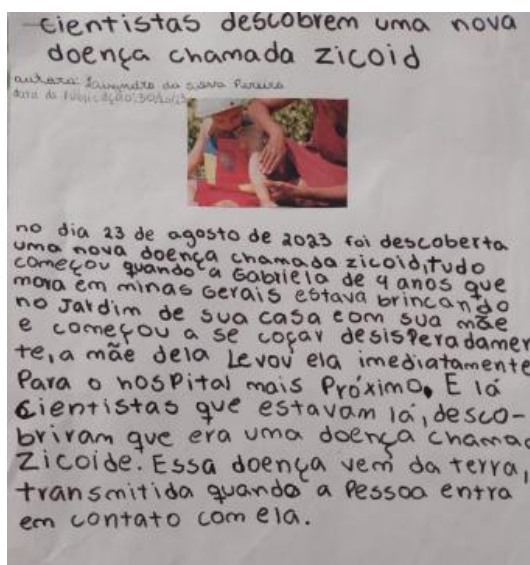 cientistas descobrem uma nova
doença chamada zicoid
autora: da Pereira
data da publicação: 30/10/23
no dia 23 de agosto de 2023 foi descoberta
uma nova doença chamada zicoid, tudo
começou quando a Gabriela de 4 anos que
mora em minas Gerais estava brincando
no Jardim de sua casa com sua mãe
e começou a se coçar desisperadamen
te, a mãe dela Levou ela imediatamente
Para o hosPital mais Próximo. E lá
cientistas que estavam lá, desco-
briram que era uma doença chamad
Zicoide. Essa doença vem da terra,
transmitida quando a Pessoa entra
em contato com ela.